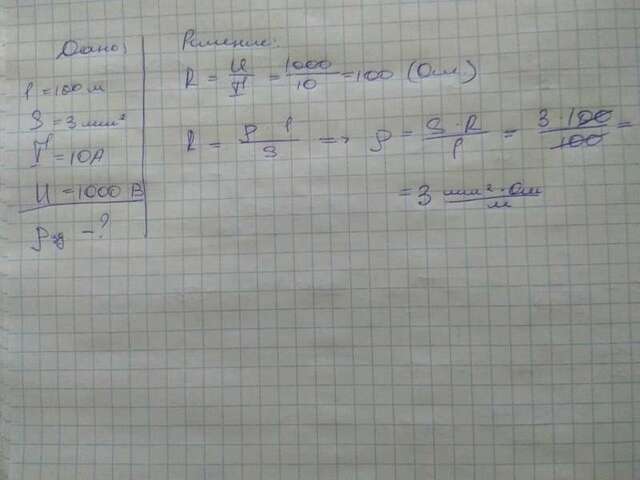 Дано:
l = 100 м
S = 3 мм²
I = 10А
U = 1000 В
ρуд - ?
Решение:
R = U/I = 1000/10 = 100 (Ом)
R = ρ l/S => ρ = S · R/l = 3 · 100/100 =
= 3 мм² · Ом/м